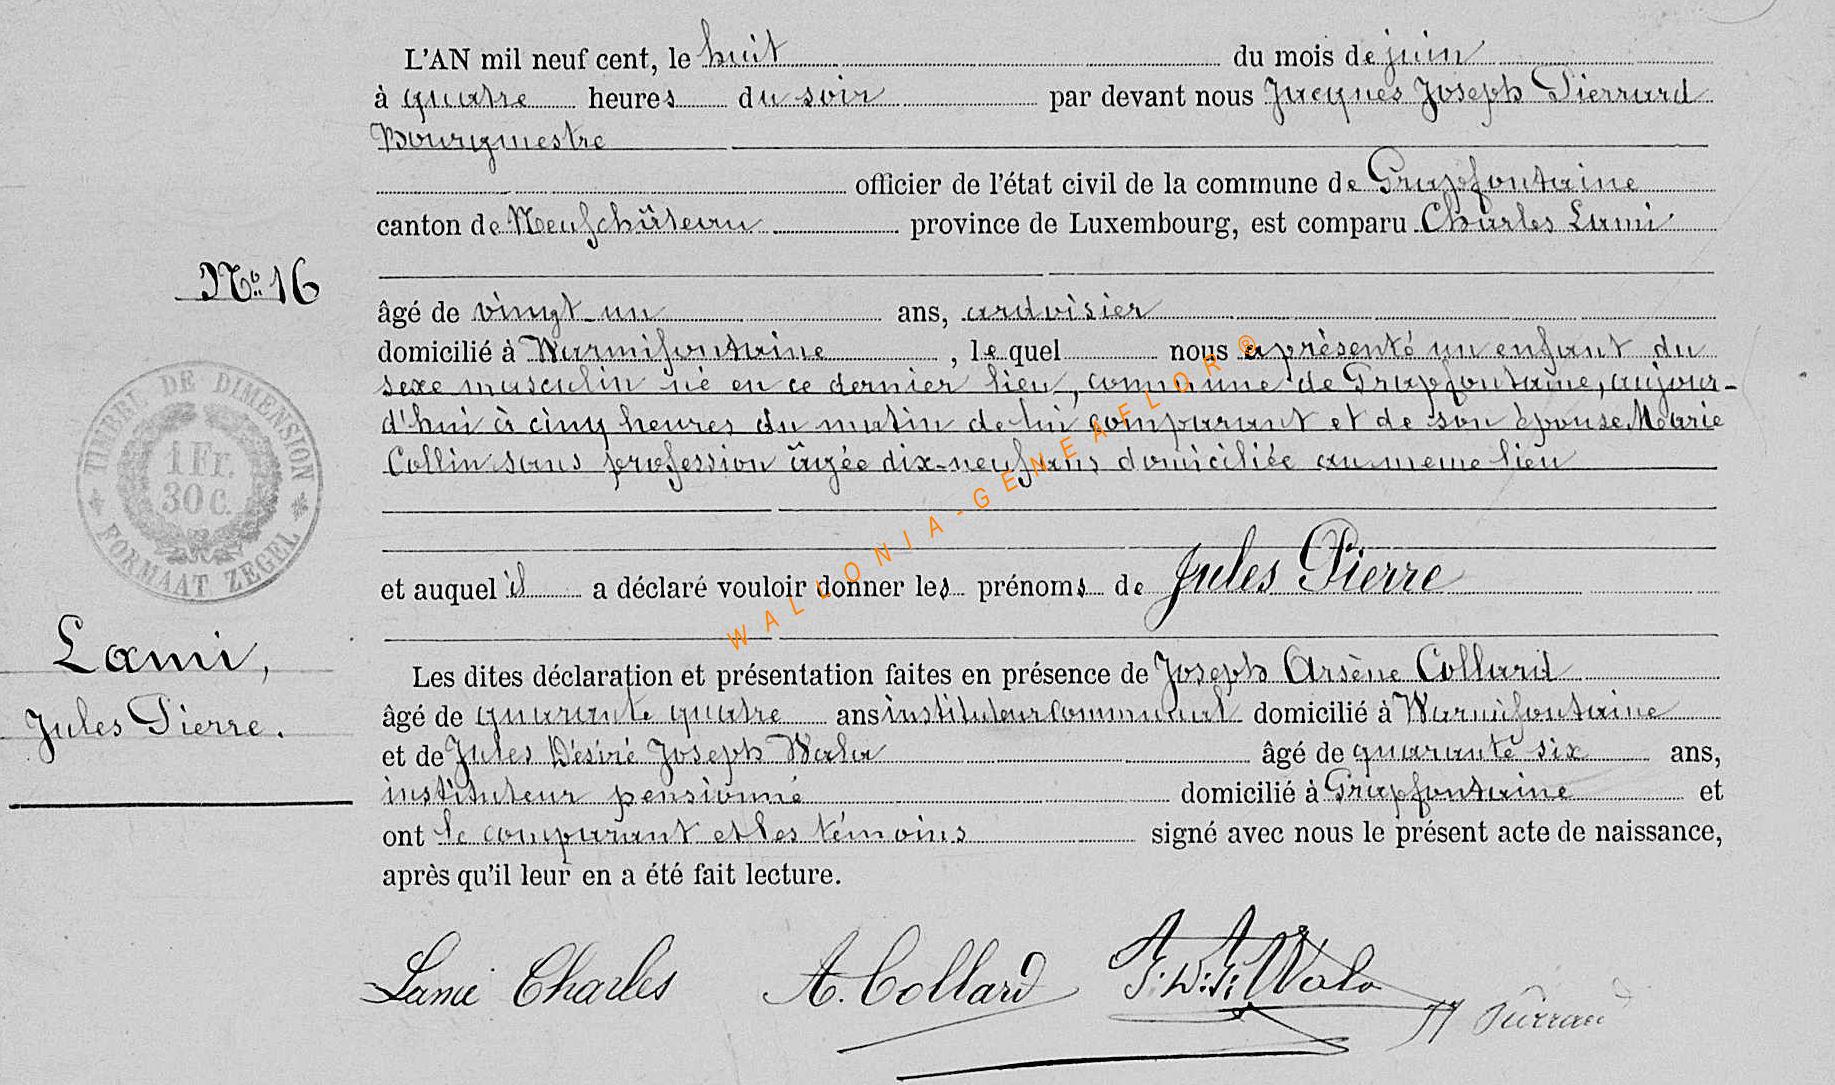 L'AN mil neuf cent, le huit du mois de juin
à quatre heures du soir par devant nous Jacques Joseph Pierrard
Bourgmestre
officier de l'état civil de la commune de Grapfontaine
canton de Neufchâteau province de Luxembourg, est comparu Charles Lami
N° 16
âgé de vingt-un ans, ardoisier
domicilié à Warmifontaine, lequel nous a présenté un enfant du
sexe masculin né en ce dernier lieu, commune de Grapfontaine, aujour-
d'hui à cinq heures du matin de lui comparant et de son épouse Marie
Collin sans profession âgée dix-neuf ans domiciliée au meme lieu
TIMBRE DE DIMENSION
1 Fr.
30 C.
FORMAAT ZEGEL
WALLONIA-GENEAFLOR®
et auquel il a déclaré vouloir donner les prénoms de Jules Pierre
Lami,
Jules Pierre.
Les dites déclaration et présentation faites en présence de Joseph Arsène Collard
âgé de quarante quatre ans instituteur communal domicilié à Warmifontaine
et de Jules Désiré Joseph Wala âgé de quarante six ans,
instituteur pensionné domicilié à Grapfontaine et
ont le comparant et les témoins signé avec nous le présent acte de naissance,
après qu'il leur en a été fait lecture.
Lami Charles A. Collard J. D. J. Wala JJ Pierrard